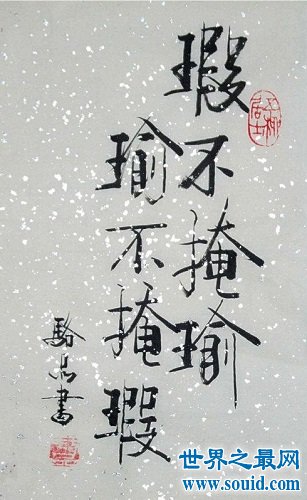 瑕不掩瑜
瑜不掩瑕
駱 書
世界之最网
www.souid.com